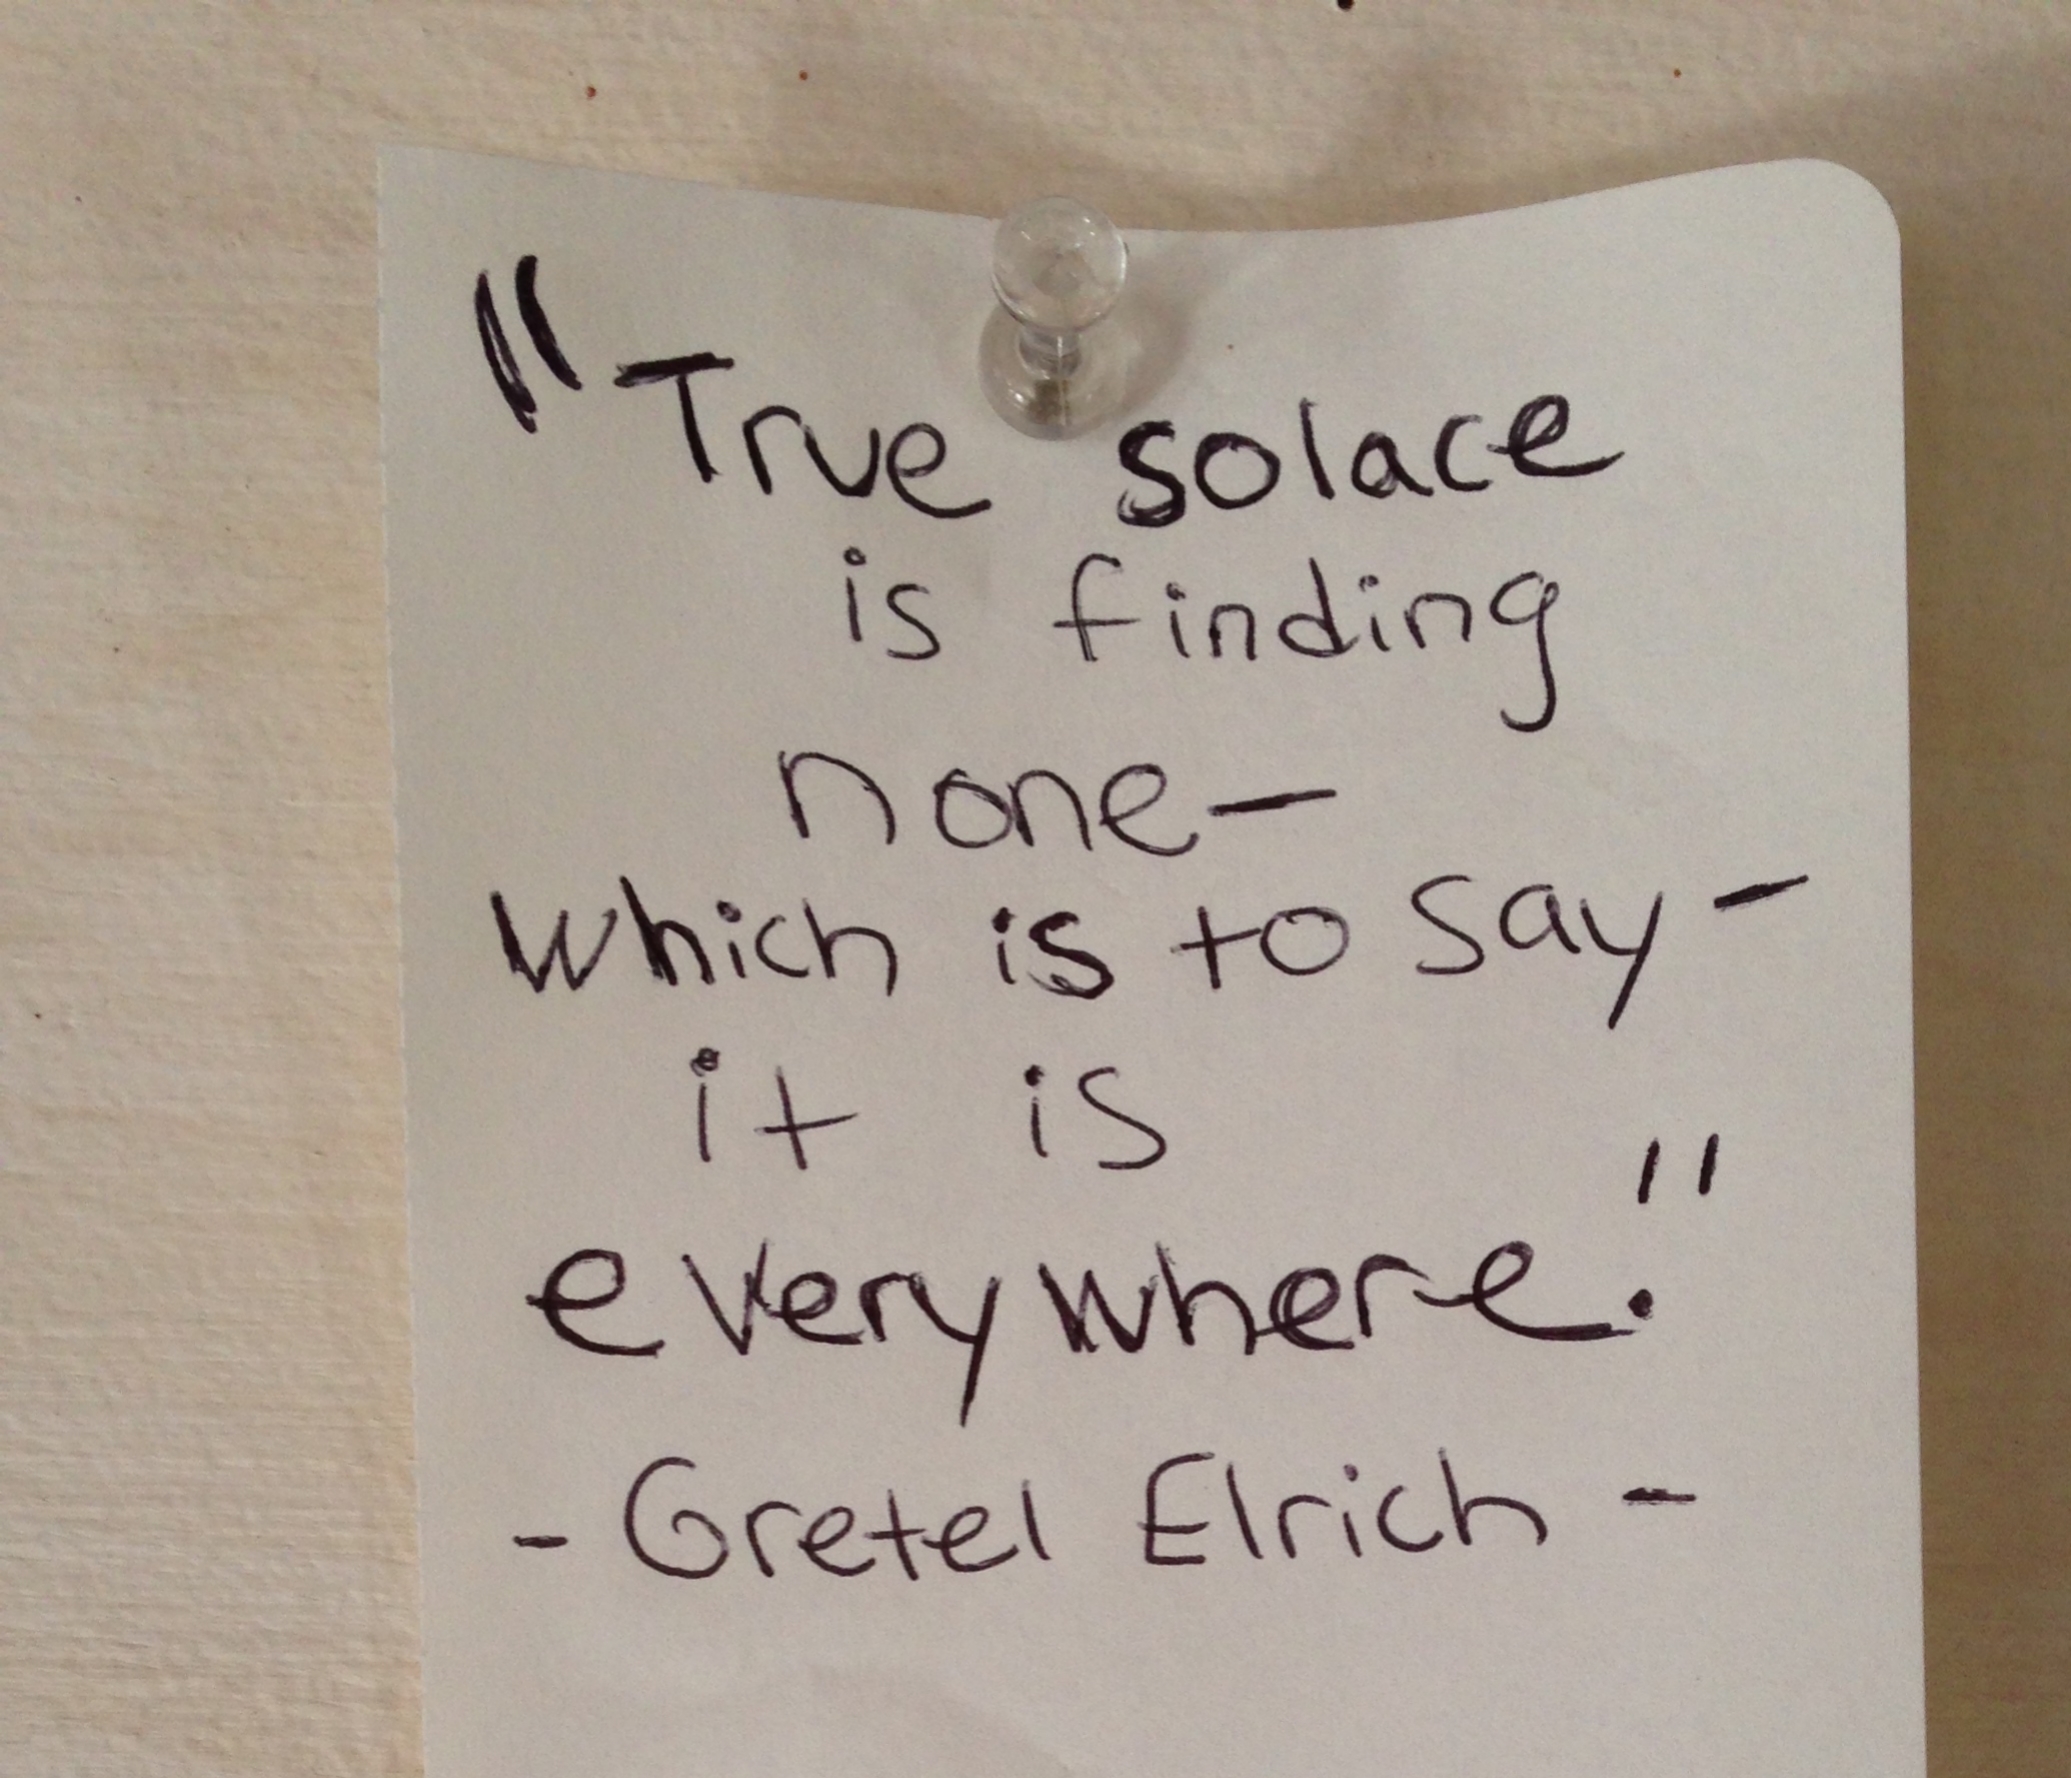 "True solace
is finding
none—
which is to say -
it is
everywhere."
- Gretel Elrich -